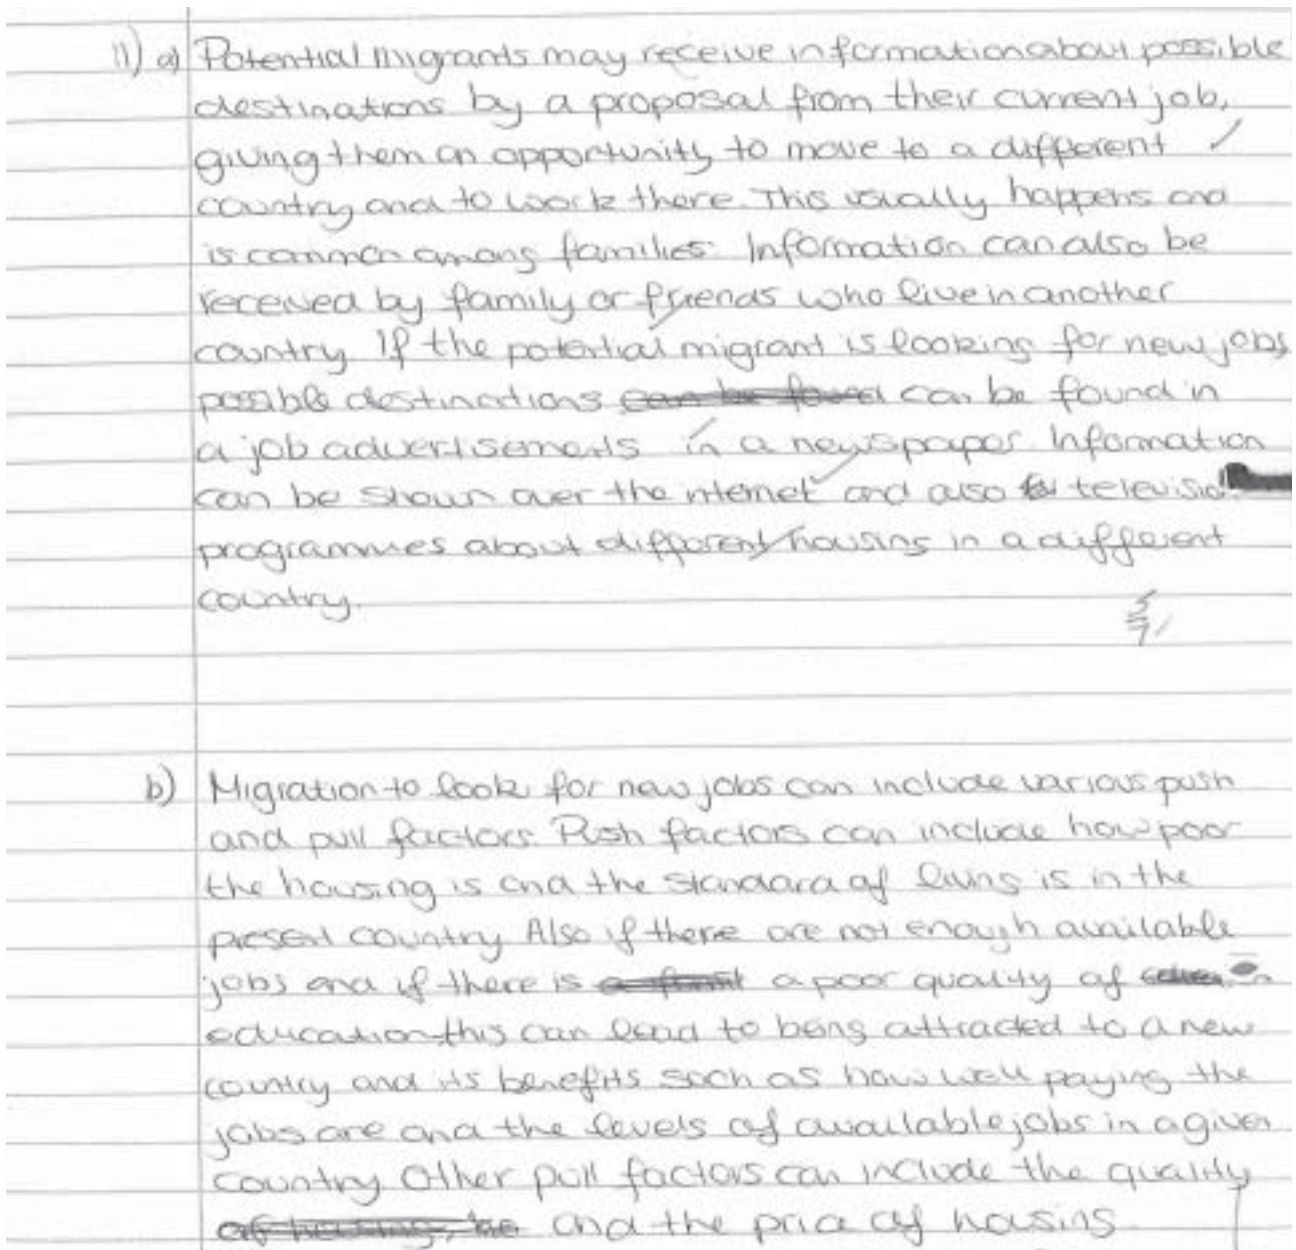 11) a) Potential migrants may receive information about possible
destinations by a proposal from their current job,
giving them an opportunity to move to a different
country and to work there. This usually happens and
is common among families. Information can also be
received by family or friends who live in another
country. If the potential migrant is looking for new jobs,
possible destinations can be found can be found in
a job advertisements in a newspaper. Information
can be shown over the internet and also televisio
programmes about different housing in a different
country.
5/7
b) Migration to look for new jobs can include various push
and pull factors. Push factors can include how poor
the housing is and the standard of living is in the
present country. Also if there are not enough available
jobs and if there is a poor quality of
education this can lead to being attracted to a new
country and its benefits such as how well paying the
jobs are and the levels of available jobs in a given
country. Other pull factors can include the quality
of housing, he and the price of housing